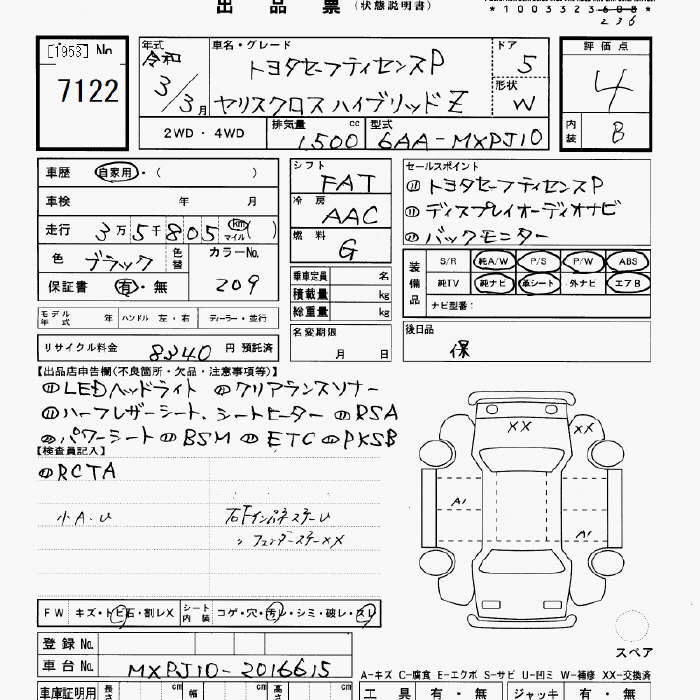 出品票 (状態説明書)
*1003323608
236
[1953] No
7122
年式
令和
3/3月
車名・グレード
トヨタセーフティセンスP
ヤリスクロス ハイブリッド Z
ドア
5
形状
W
評価点
4
内装
B
2WD・4WD
排気量 1,500 cc
型式 6AA-MXPJ10
車歴 自家用・( )
車検 年 月
走行 3万5千805 km マイル ( )
色 ブラック 色替
カラーNo. 209
保証書 有・無
シフト
FAT
冷房
AAC
燃料
G
セールスポイント
⑪トヨタセーフティセンスP
⑪ディスプレイオーディオナビ
⑪バックモニター
装備品
S/R 純A/W P/S P/W ABS
純TV 純ナビ 革シート 外ナビ エアB
ナビ型番:
乗車定員 名
積載量 kg
総重量 kg
モデル年式 年
ハンドル 左・右
ディーラー・並行
名変期限
月 日
後日品
保
リサイクル料金 8340 円 預託済
【出品店申告欄(不良箇所・欠品・注意事項等)】
⑪LEDヘッドライト ⑪クリアランスソナー
⑪ハーフレザーシート、シートヒーター ⑪RSA
⑪パワーシート ⑪BSM ⑪ETC ⑪PKSB
【検査員記入】
⑪RCTA
小A・U
右FインパネステーU
〃フェンダーステーXX
XX
XX
A1
A1
FW キズ・トビ石・割レX
シート内装 コゲ・穴・汚レ・シミ・破レ・スレ
スペア
登録No.
車台No. MXPJ10-2016615
A-キズ C-腐食 E-エクボ S-サビ U-凹ミ W-補修 XX-交換済
車庫証明用 長さ cm 幅 cm 高さ cm
工具 有・無 ジャッキ 有・無